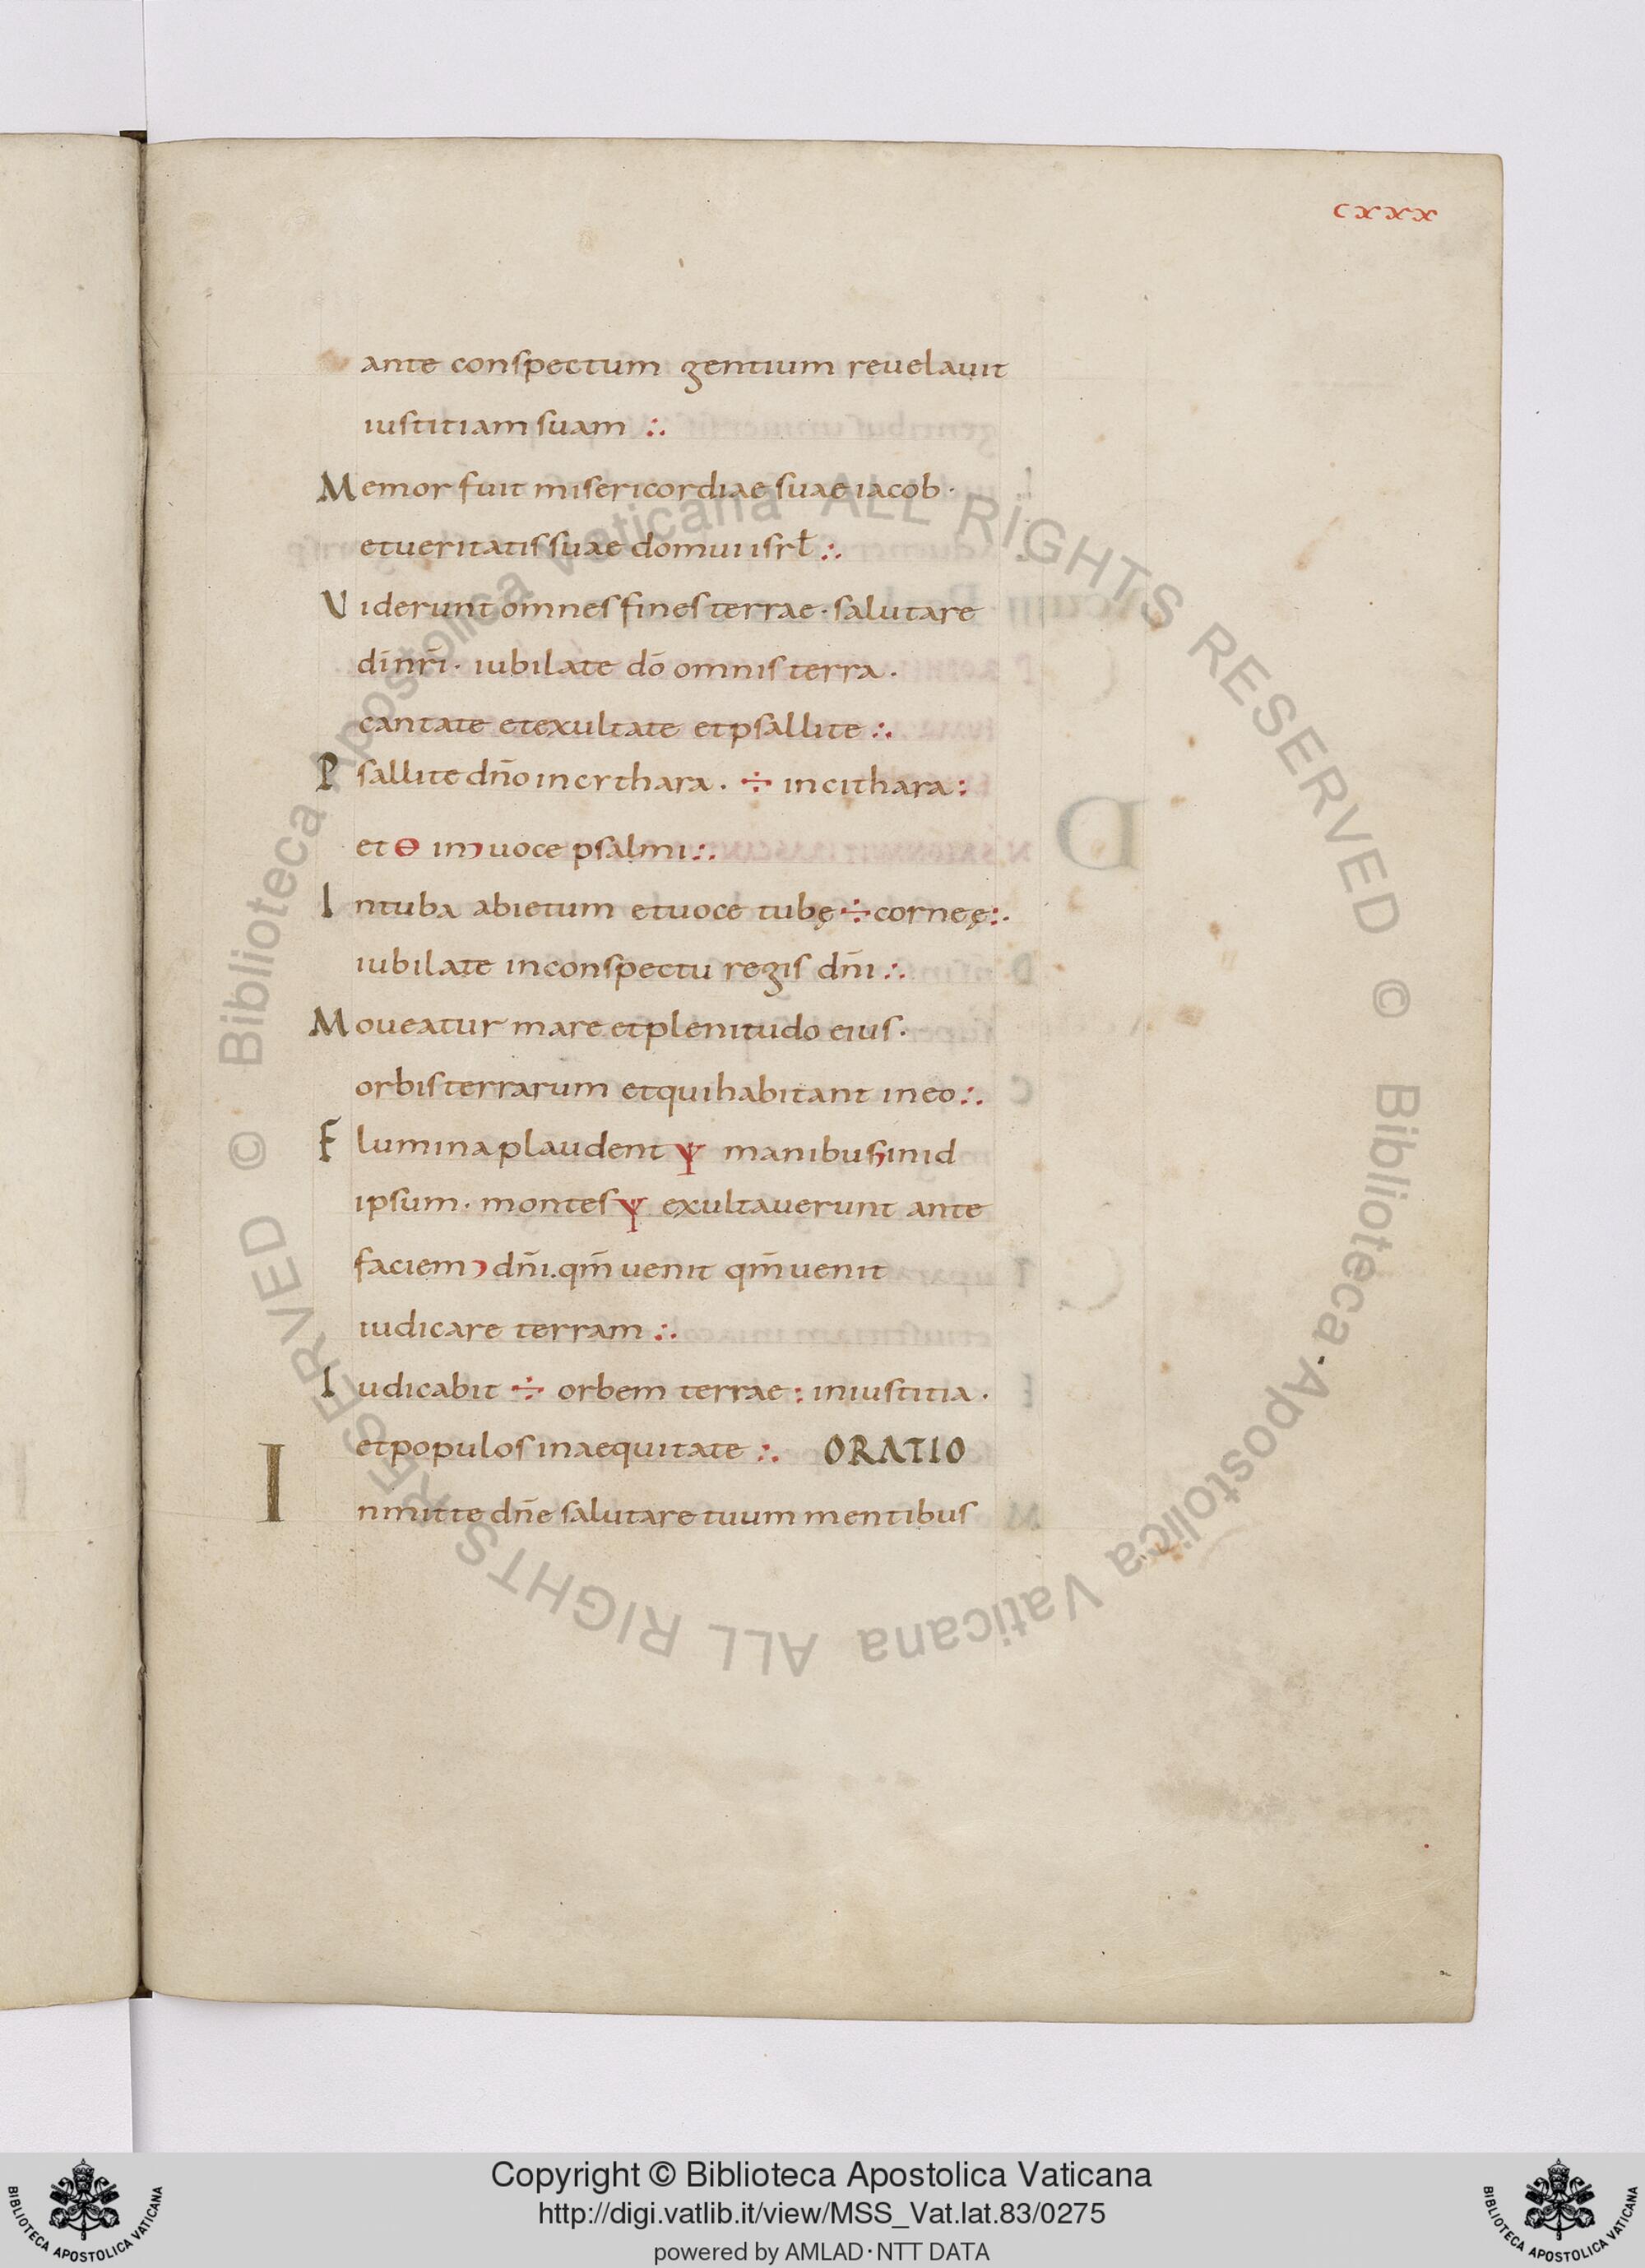 cxxx
ante conspectum gentium reuelauit
iustitiam suam :.
Memor fuit misericordiae suae iacob ·
et ueritatis suae domui isrł :.
Viderunt omnes fines terrae · salutare
dī nr̄i · iubilate dō omnis terra ·
cantate et exultate et psallite :.
Psallite dn̄o in cythara · ÷ in cithara :
et Θ in uoce psalmi :.
In tuba abietum et uoce tubę ÷ corneę :.
iubilate in conspectu regis dn̄i :.
Moueatur mare et plenitudo eius ·
orbis terrarum et qui habitant in eo :.
Flumina plaudent Ψ manibus in id
ipsum · montes Ψ exultauerunt ante
faciem dn̄i. qm̄ uenit qm̄ uenit
iudicare terram :.
Iudicabit ÷ orbem terrae : in iustitia ·
et populos in aequitate :. ORATIO
Inmitte dn̄e salutare tuum mentibus
© Biblioteca Apostolica Vaticana ALL RIGHTS RESERVED © Biblioteca Apostolica Vaticana ALL RIGHTS RESERVED
Copyright © Biblioteca Apostolica Vaticana
http://digi.vatlib.it/view/MSS_Vat.lat.83/0275
powered by AMLAD·NTT DATA
BIBLIOTECA APOSTOLICA VATICANA
BIBLIOTECA APOSTOLICA VATICANA